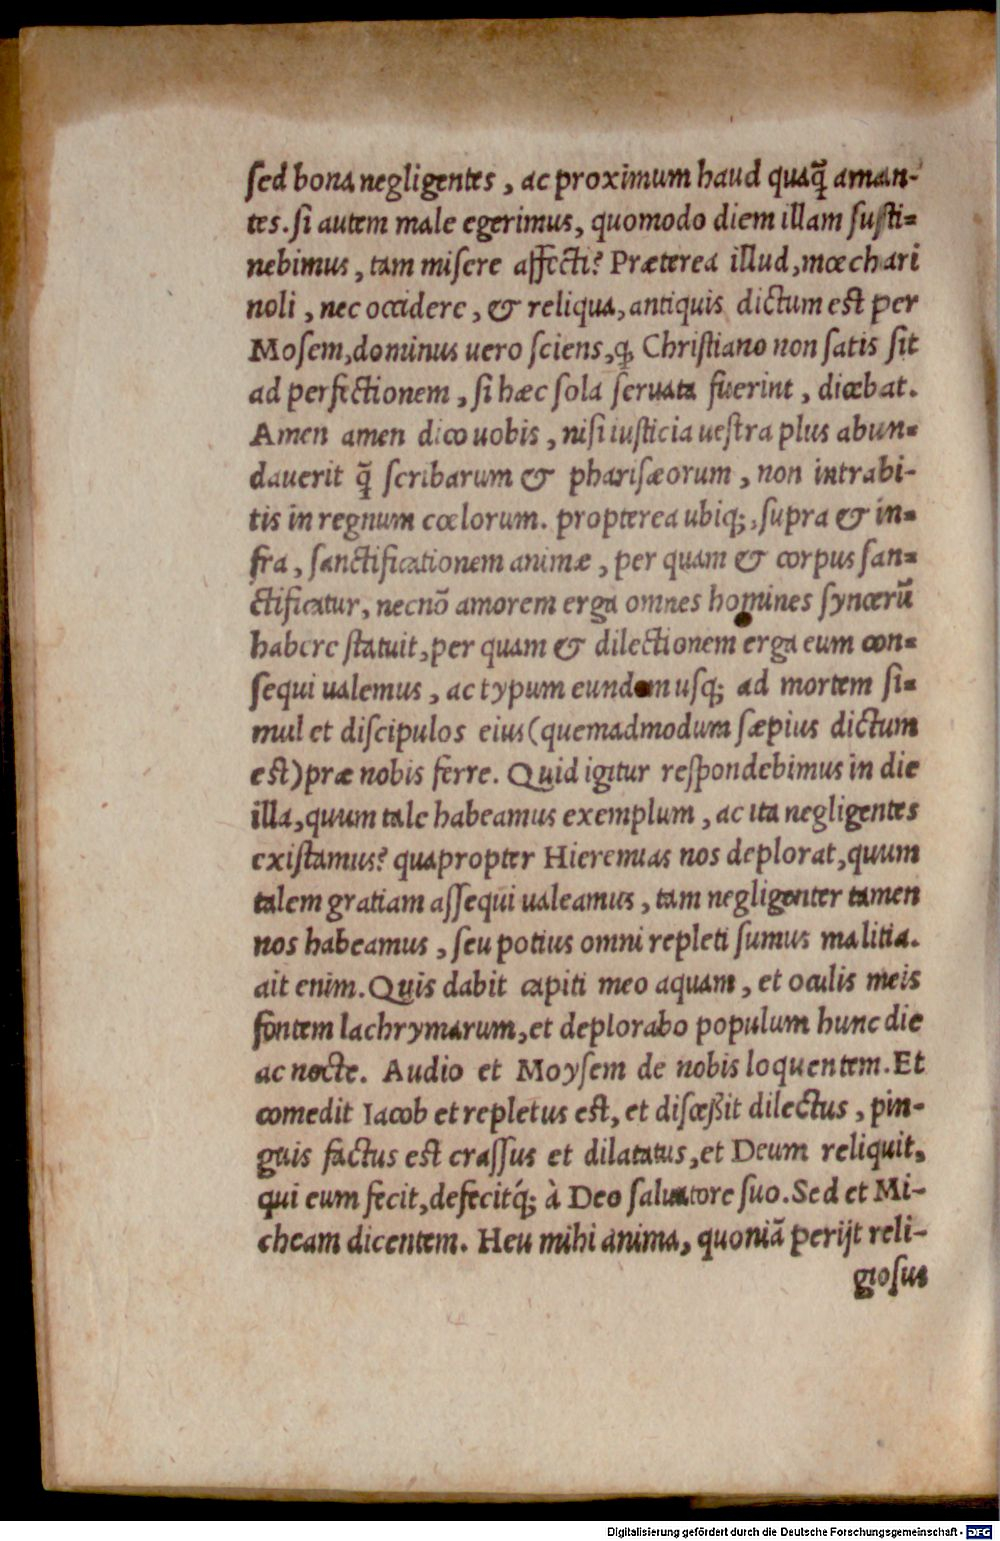 sed bona negligentes, ac proximum haud quaq̃ aman-
tes. si autem male egerimus, quomodo diem illam susti-
nebimus, tam misere affecti? Præterea illud, mœchari
noli, nec occidere, & reliqua, antiquis dictum est per
Mosem, dominus uero sciens, ꝙ Christiano non satis sit
ad perfectionem, si hæc sola seruata fuerint, dicebat.
Amen amen dico uobis, nisi iusticia uestra plus abun-
dauerit q̃ scribarum & pharisæorum, non intrabi-
tis in regnum cœlorum. propterea ubiq;, supra & in-
fra, sanctificationem animæ, per quam & corpus san-
ctificatur, necnō amorem erga omnes homines syncerū
habere statuit, per quam & dilectionem erga eum con-
sequi ualemus, ac typum eundem usq; ad mortem si-
mul et discipulos eius (quemadmodum sæpius dictum
est) præ nobis ferre. Quid igitur respondebimus in die
illa, quum tale habeamus exemplum, ac ita negligentes
existamus? quapropter Hieremias nos deplorat, quum
talem gratiam assequi ualeamus, tam negligenter tamen
nos habeamus, seu potius omni repleti sumus malitia.
ait enim. Quis dabit capiti meo aquam, et oculis meis
fontem lachrymarum, et deplorabo populum hunc die
ac nocte. Audio et Moysem de nobis loquentem. Et
comedit Iacob et repletus est, et disceßit dilectus, pin-
guis factus est crassus et dilatatus, et Deum reliquit,
qui eum fecit, defecitq́; à Deo saluatore suo. Sed et Mi-
cheam dicentem. Heu mihi anima, quoniã perijt reli-
giosus
Digitalisierung gefördert durch die Deutsche Forschungsgemeinschaft - DFG